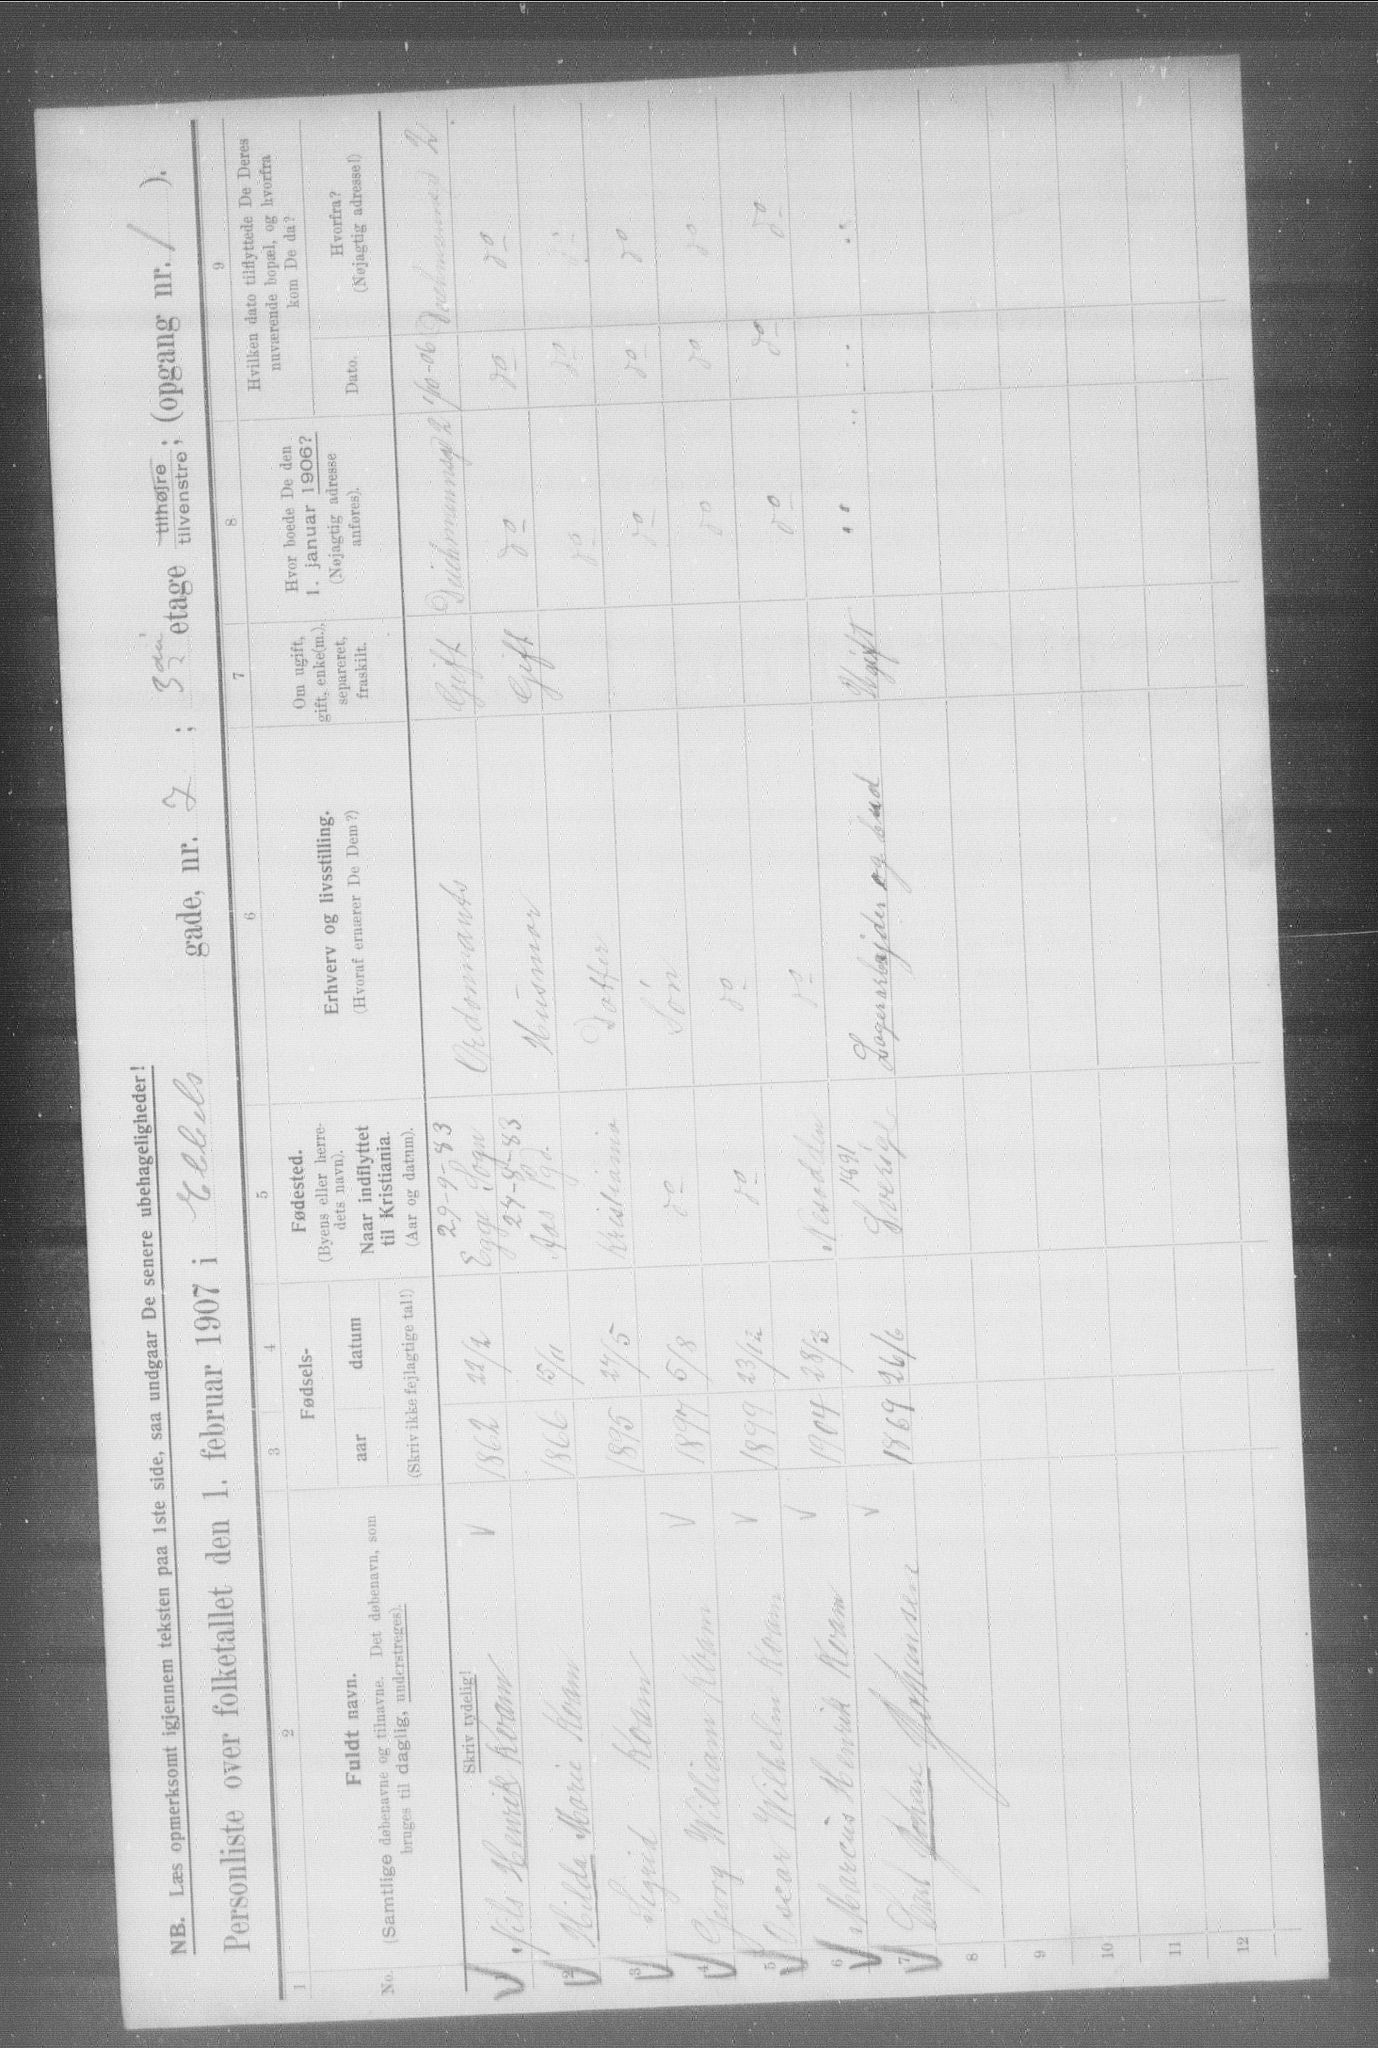 NB. Læs opmerksomt igjennem teksten paa 1ste side, saa undgaar De senere ubehageligheder!
Personliste over folketallet den 1. februar 1907 i Ebbels gade, nr. 7; 3die etage tilhøjre, tilvenstre; (opgang nr. 1).
1 2 3 4 5 6 7 8 9
No.
Fuldt navn.
(Samtlige døbenavne og tilnavne. Det døbenavn, som
bruges til daglig, understreges).
Fødsels-
aar datum
(Skriv ikke fejlagtige tal!)
Fødested.
(Byens eller herre-
dets navn).
Naar indflyttet
til Kristiania.
(Aar og datum).
Erhverv og livsstilling.
(Hvoraf ernærer De Dem?)
Om ugift,
gift, enke(m.),
separeret,
fraskilt.
Hvor boede De den
1. januar 1906?
(Nøjagtig adresse
anføres).
Hvilken dato tilflyttede De Deres
nuværende bopæl, og hvorfra
kom De da?
Dato.
Hvorfra?
(Nøjagtig adresse!)
Skriv tydelig!
29-9-83
1 Nils Henrik Kvam V 1862 22/2 Egge Sogn Gift Deichmannsgd 2 1/10-06 2
24-8-83
2 Hulda Marie Kvam 1866 15/11 Aas Pgd. Husmor Gift do do do
3 Sigrid Kvam 1895 27/5 Kristiania Datter do do do
4 Georg William Kvam V 1897 5/8 do Sön do do do
5 Oscar Wilhelm Kvam V 1899 23/12 do do do do do
6 Marcus Henrik Kvam V 1904 28/3 Nesodden do do do do
7 Johan Johansen V 1869 26/6 Sverige Lagerarbejder og bud Ugift
8
9
10
11
12